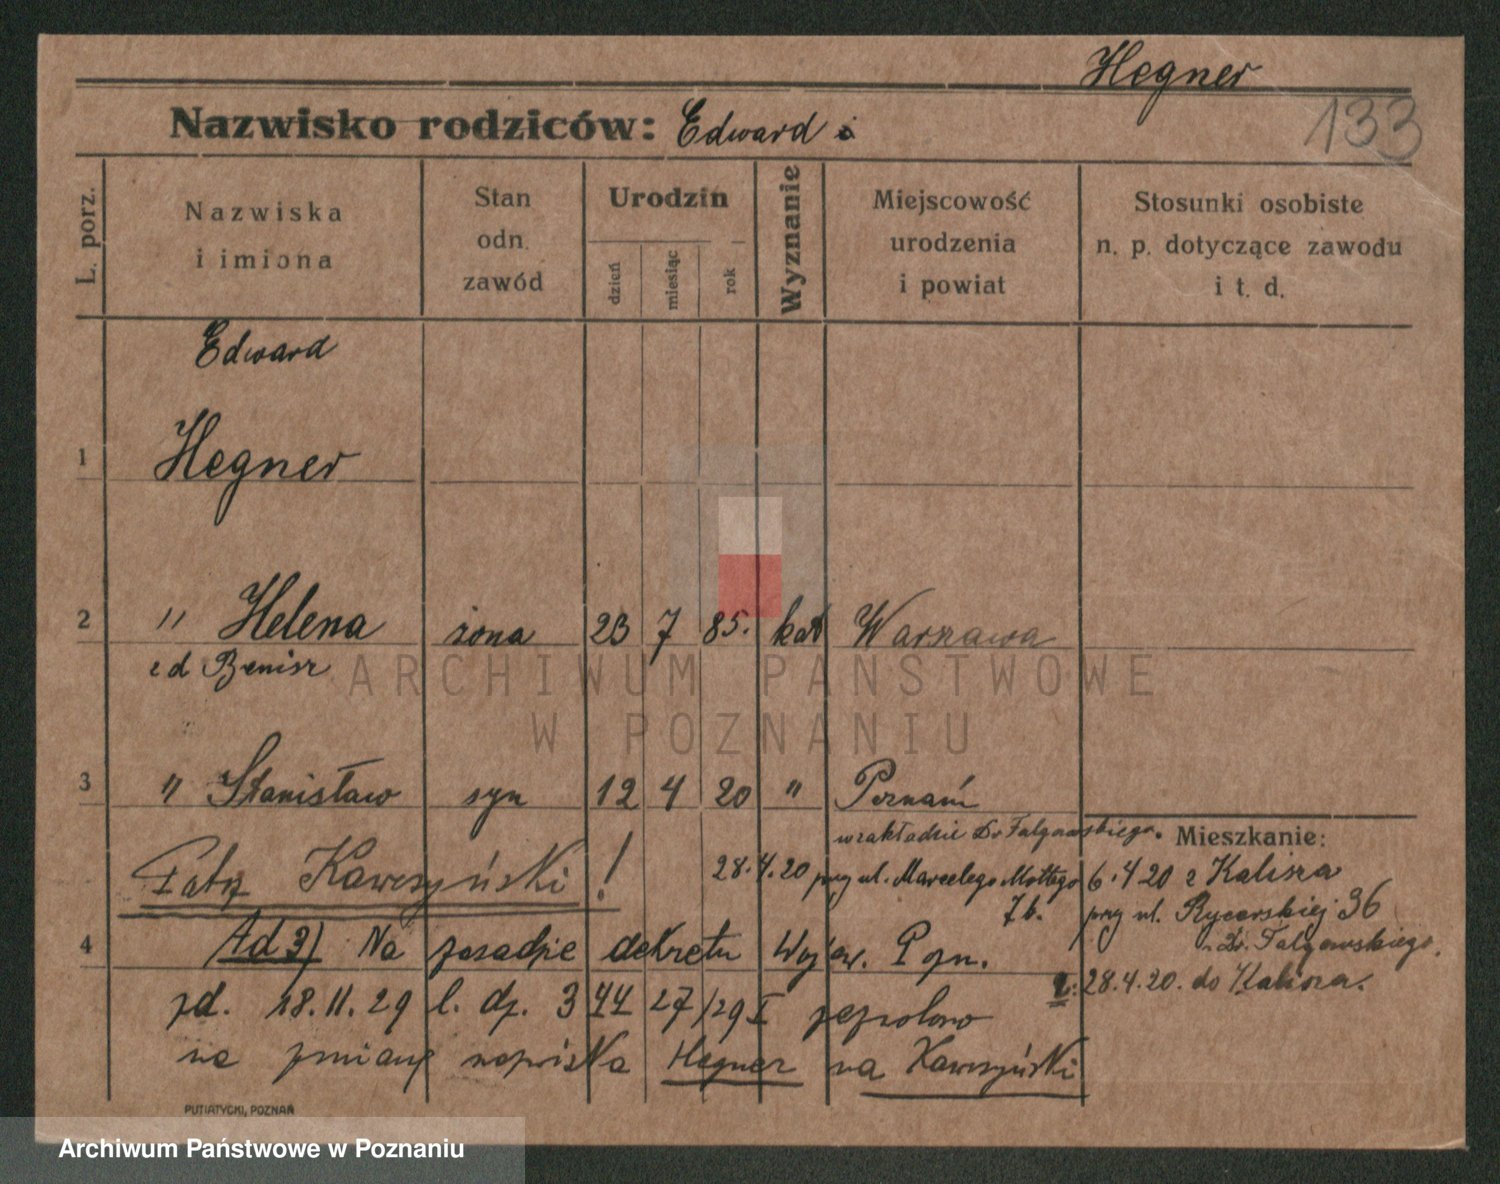 Hegner
133
Nazwisko rodziców: Edward i
L. porz.
Nazwiska
i imiona
Stan
odn.
zawód
Urodzin
dzień
miesiąc
rok
Wyznanie
Miejscowość
urodzenia
i powiat
Stosunki osobiste
n. p. dotyczące zawodu
i t. d.
Edward
1 Hegner
2 " Helena żona 23 7 85. kat Warszawa
z d Benisz
3 " Stanisław syn 12 4 20 " Poznań
w zakładzie Dr Falgowskiego.
Mieszkanie:
Patrz Kawczyński!
28.4.20 przy ul. Marcelego Mottego
7b.
6.4 20 z Kalisza
przy ul. Rycerskiej 36
Dr. Falgowskiego.
28.4.20. do Kalisza.
4
Ad 3) Na zasadzie dekretu Wojew. Pozn.
zd. 18.11.29 l. dz. 3427/29 I zezwolono
na zmianę nazwiska Hegner na Kawczyński
PUTIATYCKI, POZNAŃ
ARCHIWUM PAŃSTWOWE
W POZNANIU
Archiwum Państwowe w Poznaniu